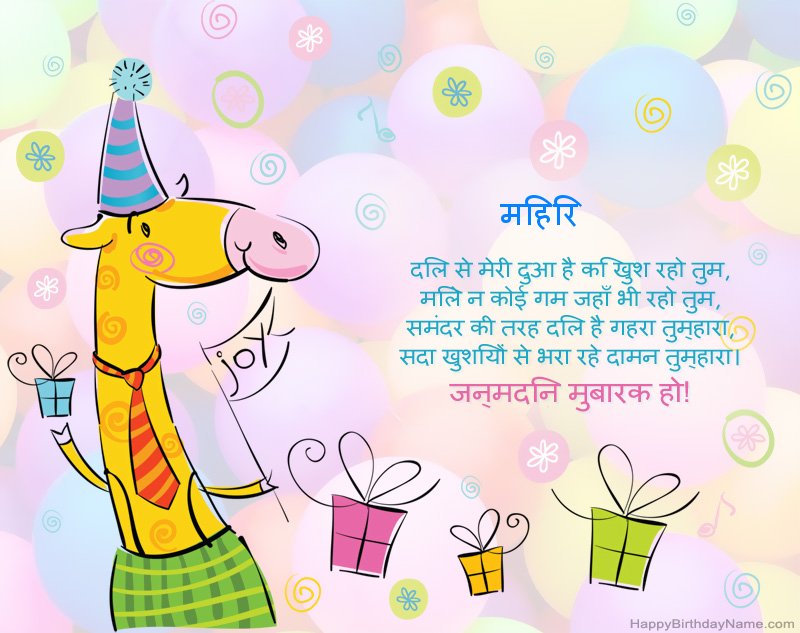 महिरि
दलि से मेरी दुआ है कि खुश रहो तुम,
मलिे न कोई गम जहाँ भी रहो तुम,
समंदर की तरह दलि है गहरा तुम्हारा,
सदा खुशयिों से भरा रहे दामन तुम्हारा।
जन्मदनि मुबारक हो!
joy
HappyBirthdayName.com